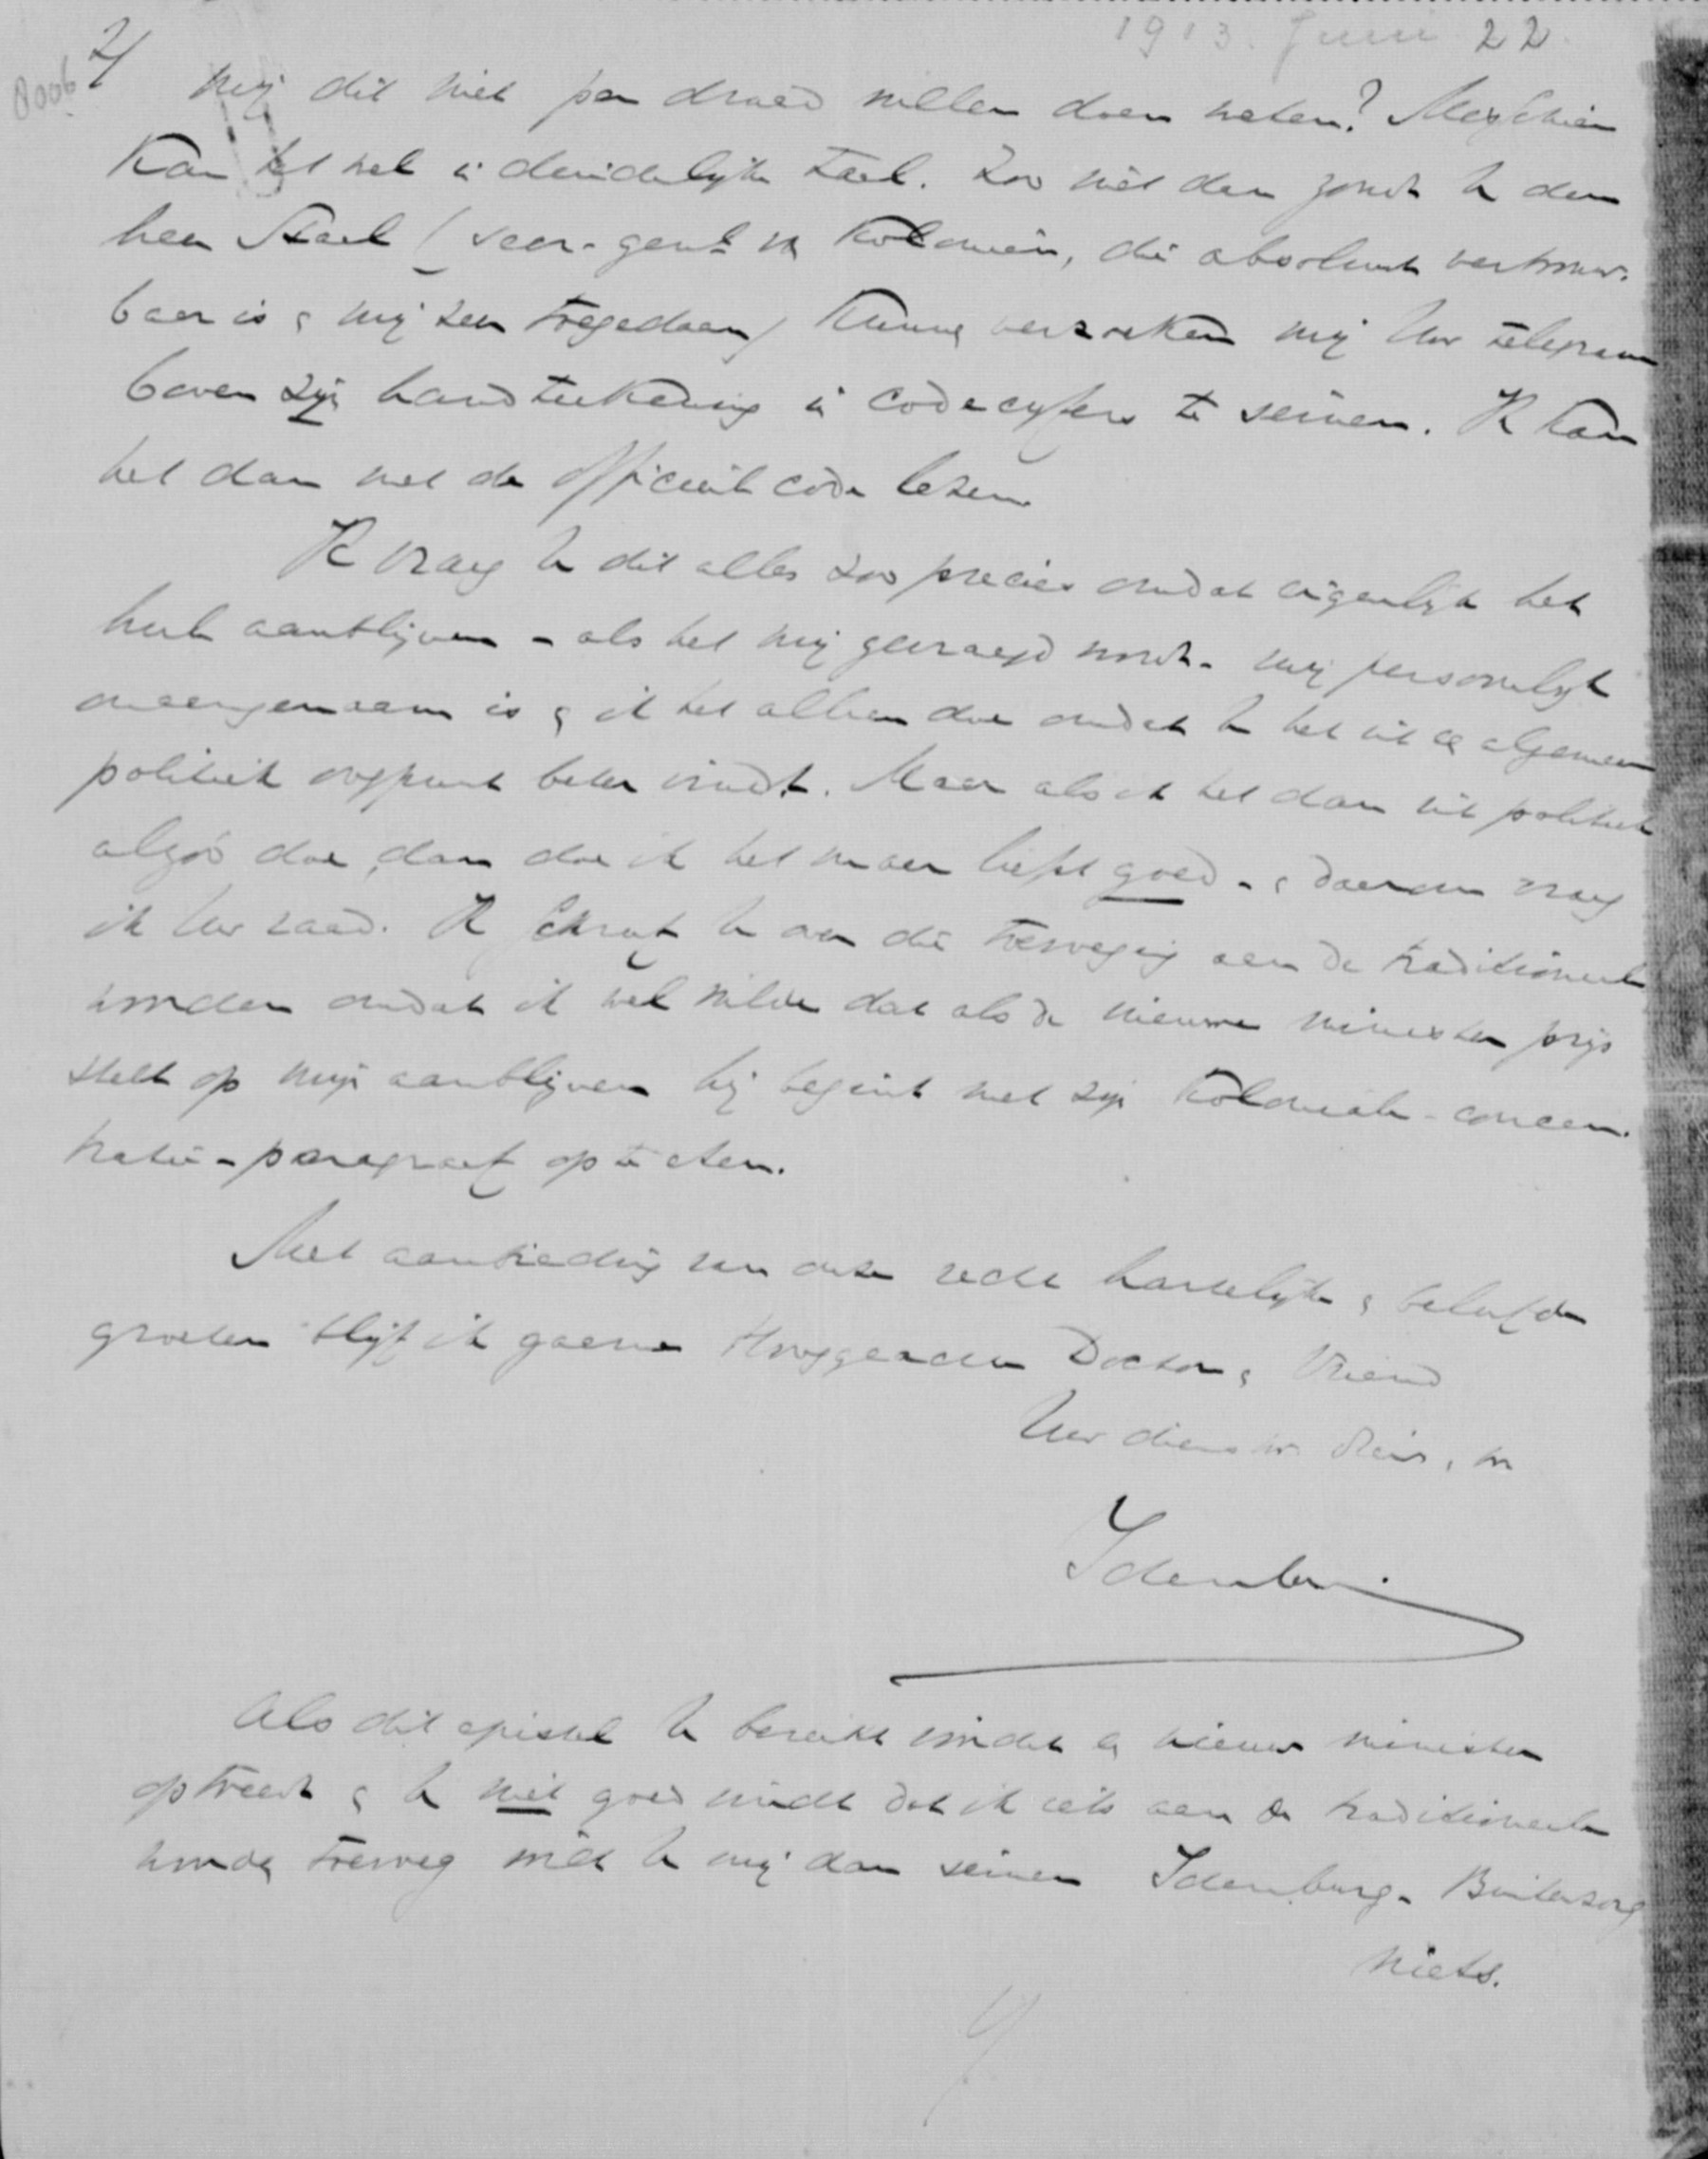 1913. Juni 22.
8006
2/
mij dit niet per draad willen doen weten? Misschien
kan het wel in duidelijke taal. Zoo niet dan zoudt U den
heer Staal (secr.-genl v. Koloniën, die absoluut vertrouw-
baar is & mij zeer toegedaan) kunnen verzoeken mij Uw telegram
boven zijn handteekening in codecyfers te seinen. Ik kan
het dan met de officieele code lezen.
Ik vraag U dit alles zoo precies omdat eigenlijk het
heele aanblijven - als het mij gevraagd wordt - mij persoonlijk
onaangenaam is & ik het alleen doe omdat U het uit een algemeen
politiek oogpunt beter vindt. Maar als ik het dan uit politiek
alzoo doe, dan doe ik het maar liefst goed - & daarom vraag
ik Uw raad. Ik schreef U over die toevoeging aan de traditioneele
woorden omdat ik wel wilde dat als de nieuwe minister prijs
stelt op mijn aanblijven hij begint met zijn Koloniale-concen-
tratie-paragraaf op te eten.
Met aanbieding van onze zeer hartelijke & beleefde
groeten blijf ik gaarne Hooggeachte Doctor & Vriend
Uw dienstw. dien. &
Idenburg
Als dit epistel U bereikt vóórdat een nieuwe minister
optreedt & U niet goed vindt dat ik iets aan de traditioneele
woorden toevoeg wilt U mij dan seinen Idenburg - Buitenzorg
niets.